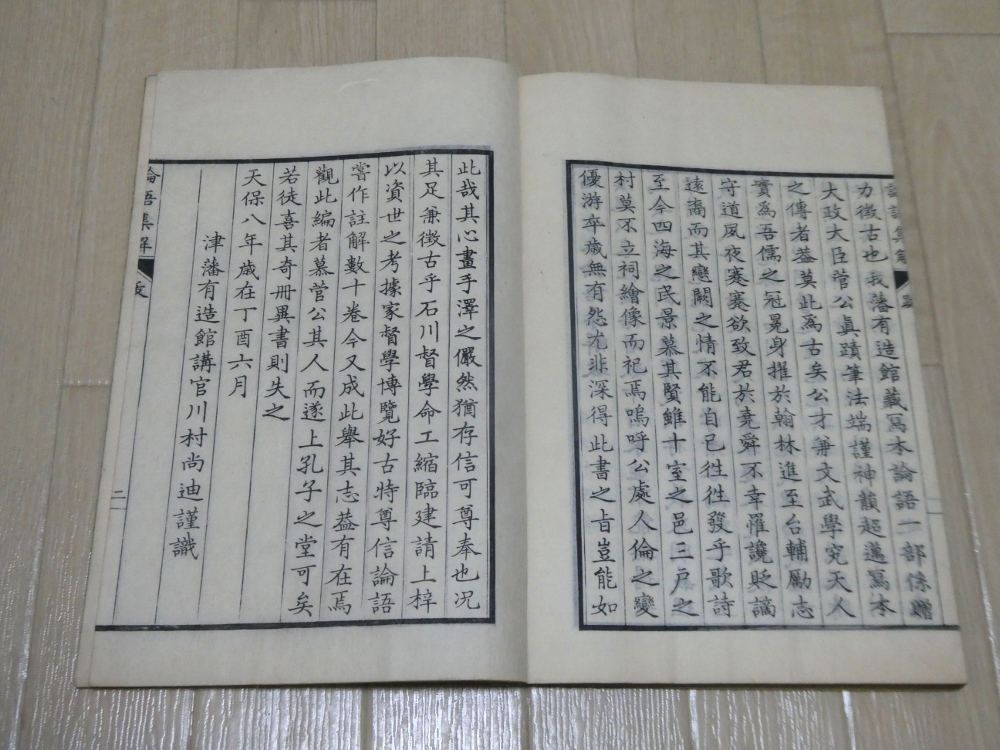 力徵古也我藩有造館藏寫本論語一部係贈
大政大臣菅公眞蹟筆法端謹神韻超邁寫本
之傳者葢莫此爲古矣公才兼文武學究天人
實爲吾儒之冠冕身擢於翰林進至台輔勵志
守道夙夜蹇蹇欲致君於堯舜不幸罹讒貶謫
遠裔而其戀闕之情不能自已徃徃發乎歌詩
至今四海之民景慕其賢雖十室之邑三戶之
村莫不立祠繪像而祀焉嗚呼公處人倫之變
優游卒歲無有怨尤非深得此書之旨豈能如
此哉其心畫手澤之儼然猶存信可尊奉也况
其足兼徵古乎石川督學命工縮臨建請上梓
以資世之考據家督學博覽好古特尊信論語
嘗作註解數十卷今又成此舉其志葢有在焉
觀此編者慕菅公其人而遂上孔子之堂可矣
若徒喜其奇册異書則失之
天保八年歲在丁酉六月
津藩有造館講官川村尚迪謹識
論語集解
跋
二